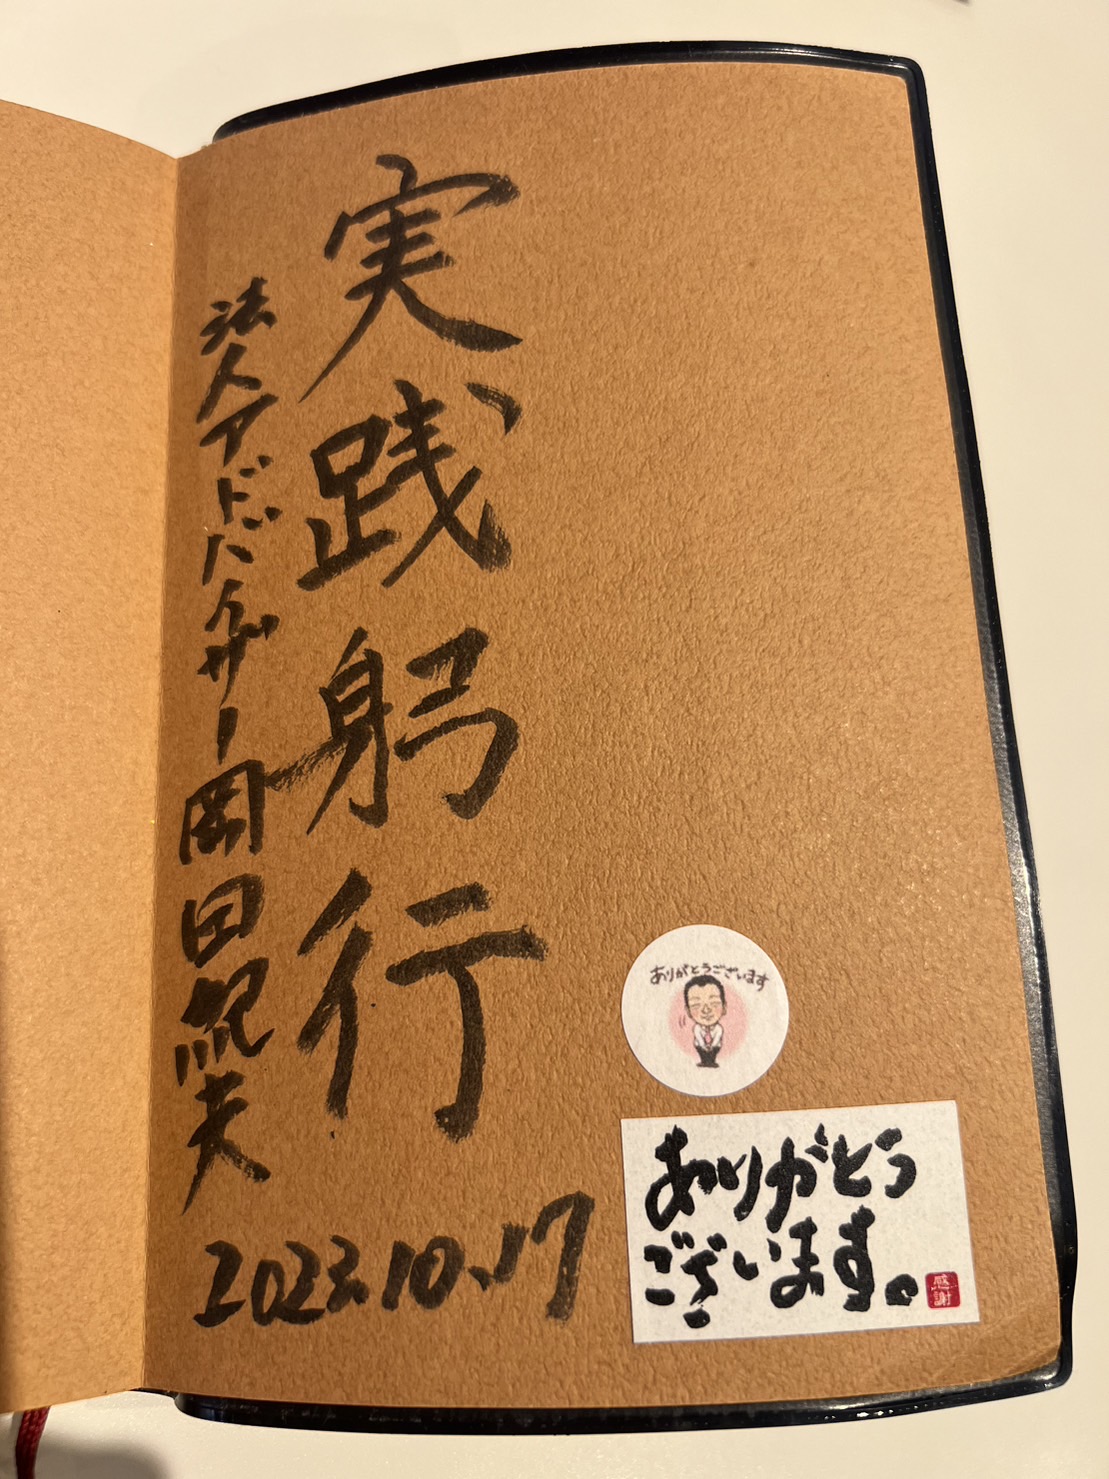 実践躬行
法人アドバイザー 岡田紀夫
2023.10.17
ありがとうございます
ありがとう
ございます。
感謝